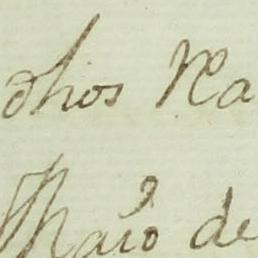 dhos Na
Maio de